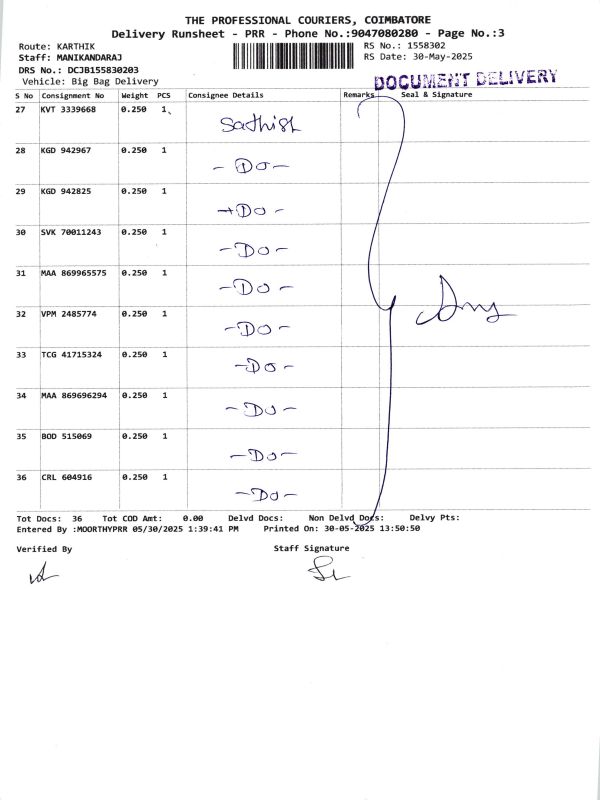 THE PROFESSIONAL COURIERS, COIMBATORE
Delivery Runsheet - PRR - Phone No.:9047080280 - Page No.:3
Route: KARTHIK RS No.: 1558302
Staff: MANIKANDARAJ RS Date: 30-May-2025
DRS No.: DCJB155830203
Vehicle: Big Bag Delivery DOCUMENT DELIVERY
S No Consignment No Weight PCS Consignee Details Remarks Seal & Signature
27 KVT 3339668 0.250 1 Sathish
28 KGD 942967 0.250 1 - Do -
29 KGD 942825 0.250 1 - Do -
30 SVK 70011243 0.250 1 - Do -
31 MAA 869965575 0.250 1 - Do -
32 VPM 2485774 0.250 1 - Do -
33 TCG 41715324 0.250 1 - Do -
34 MAA 869696294 0.250 1 - Do -
35 BOD 515069 0.250 1 - Do -
36 CRL 604916 0.250 1 - Do -
Tot Docs: 36 Tot COD Amt: 0.00 Delvd Docs: Non Delvd Docs: Delvy Pts:
Entered By :MOORTHYPRR 05/30/2025 1:39:41 PM Printed On: 30-05-2025 13:50:50
Verified By Staff Signature